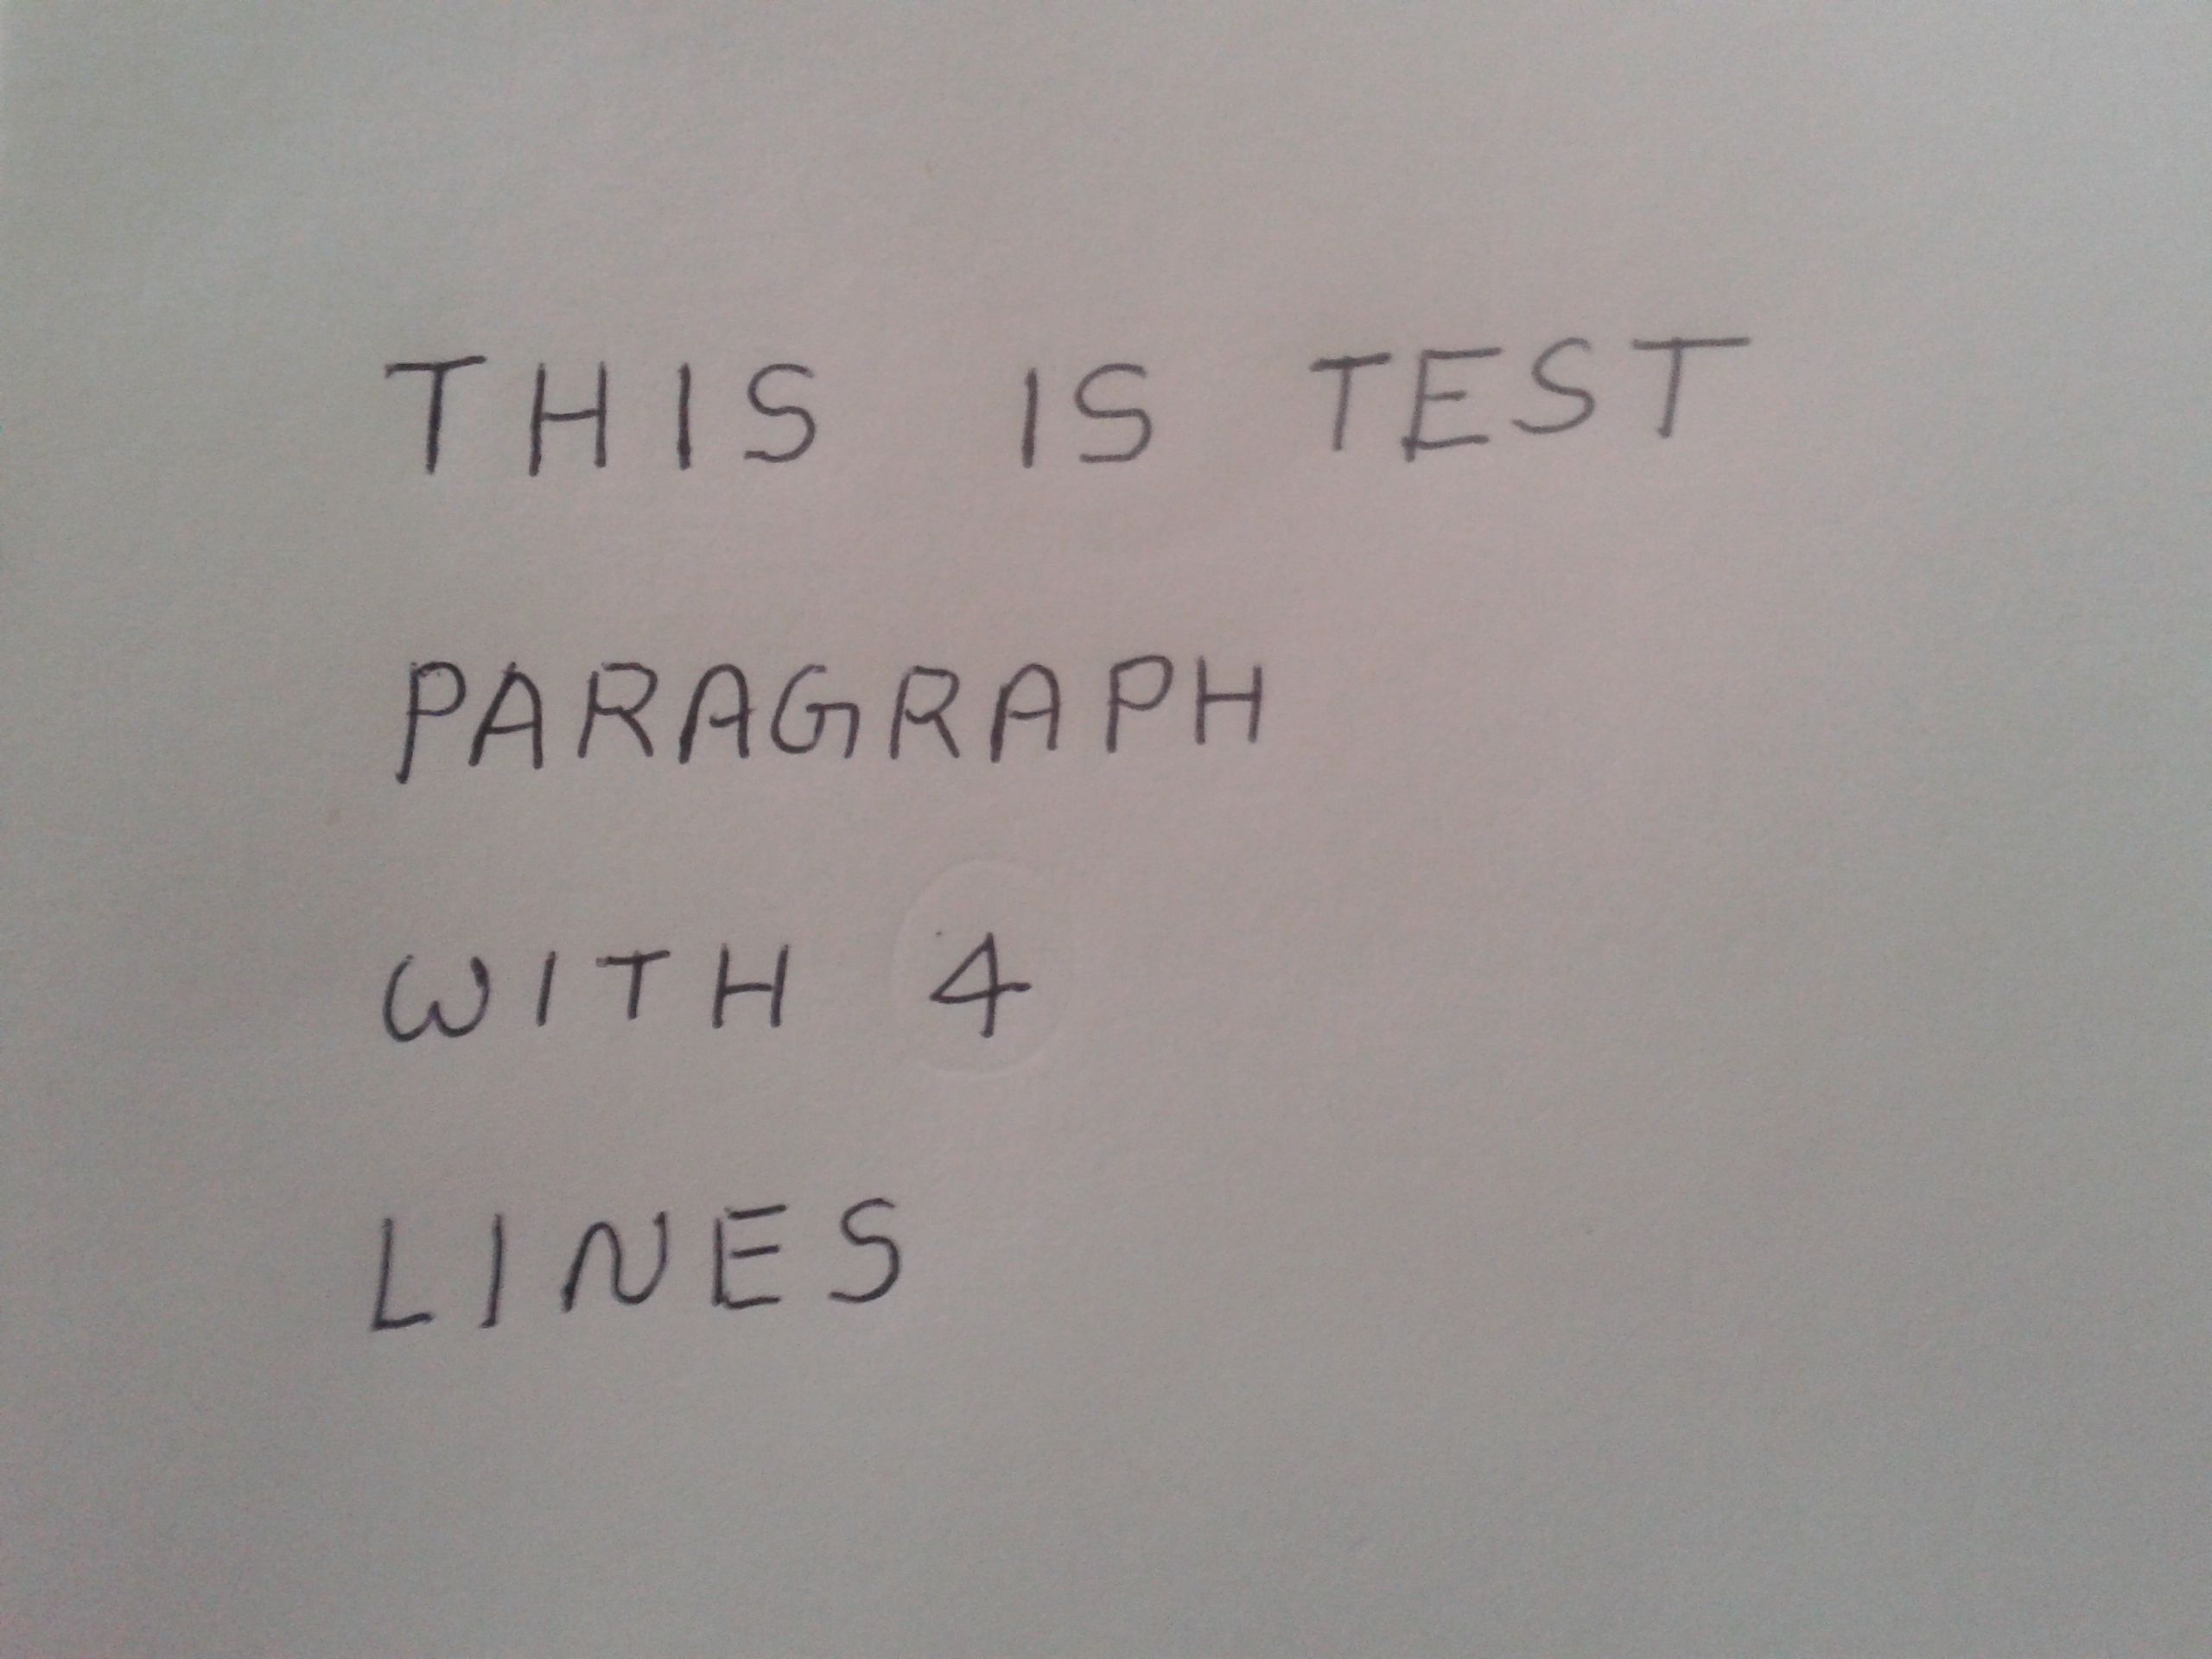 THIS IS TEST
PARAGRAPH
WITH 4
LINES